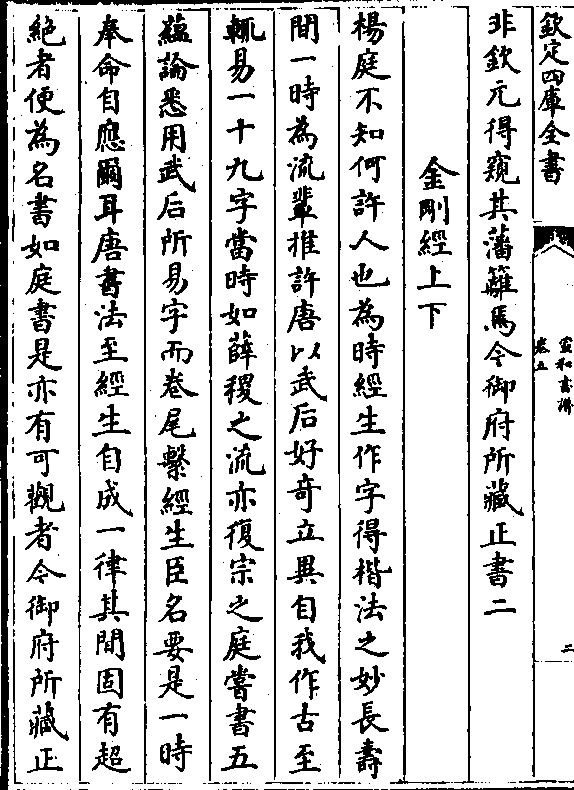 欽定四庫全書
宣和書譜
卷五
二
非欽元得窺其藩籬焉今御府所藏正書二
金剛經上下
楊庭不知何許人也為時經生作字得楷法之妙長壽
間一時為流輩推許唐以武后好竒立異自我作古至
輒易一十九字當時如薛稷之流亦復宗之庭嘗書五
藴論悉用武后所易字而卷尾繫經生臣名要是一時
奉命自應爾耳唐書法至經生自成一律其間固有超
絶者便為名書如庭書是亦有可觀者今御府所藏正